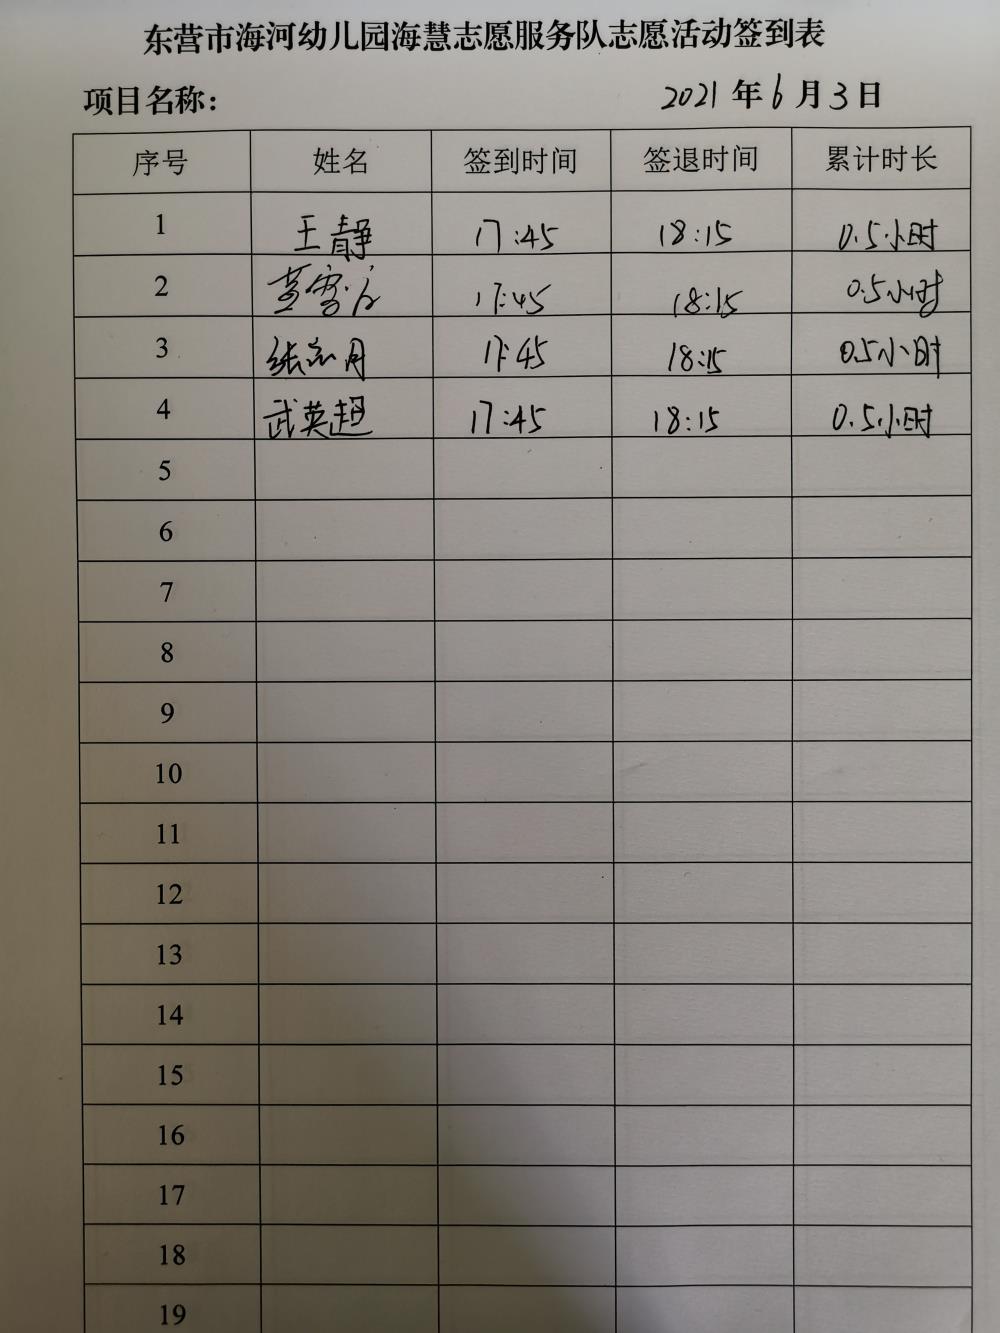 东营市海河幼儿园海慧志愿服务队志愿活动签到表
项目名称： 2021年6月3日
序号 姓名 签到时间 签退时间 累计时长
1 王静 17:45 18:15 0.5小时
2 17:45 18:15 0.5小时
3 17:45 18:15 0.5小时
4 武英超 17:45 18:15 0.5小时
5
6
7
8
9
10
11
12
13
14
15
16
17
18
19